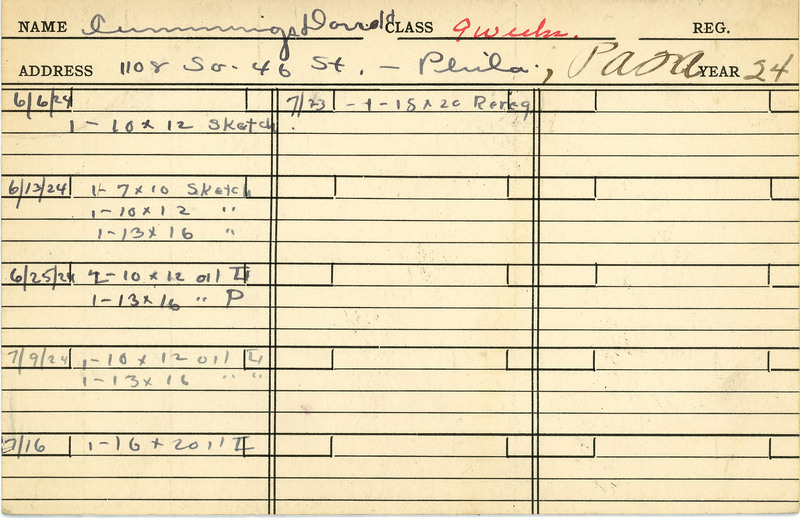 NAME Cummings Donald CLASS 9 weeks. REG.
ADDRESS 1108 So. 46 St. - Phila., YEAR 24
6/6/24
1-10x12 Sketch.
6/13/24 1-7x10 Sketch
1-10x12 "
1-13x16 "
6/25/24 2-10x12 oil II
1-13x16 " P
7/9/24 1-10x12 oil II
1-13x16 " "
7/16 1-16x20 II
7/23 -1-18x20